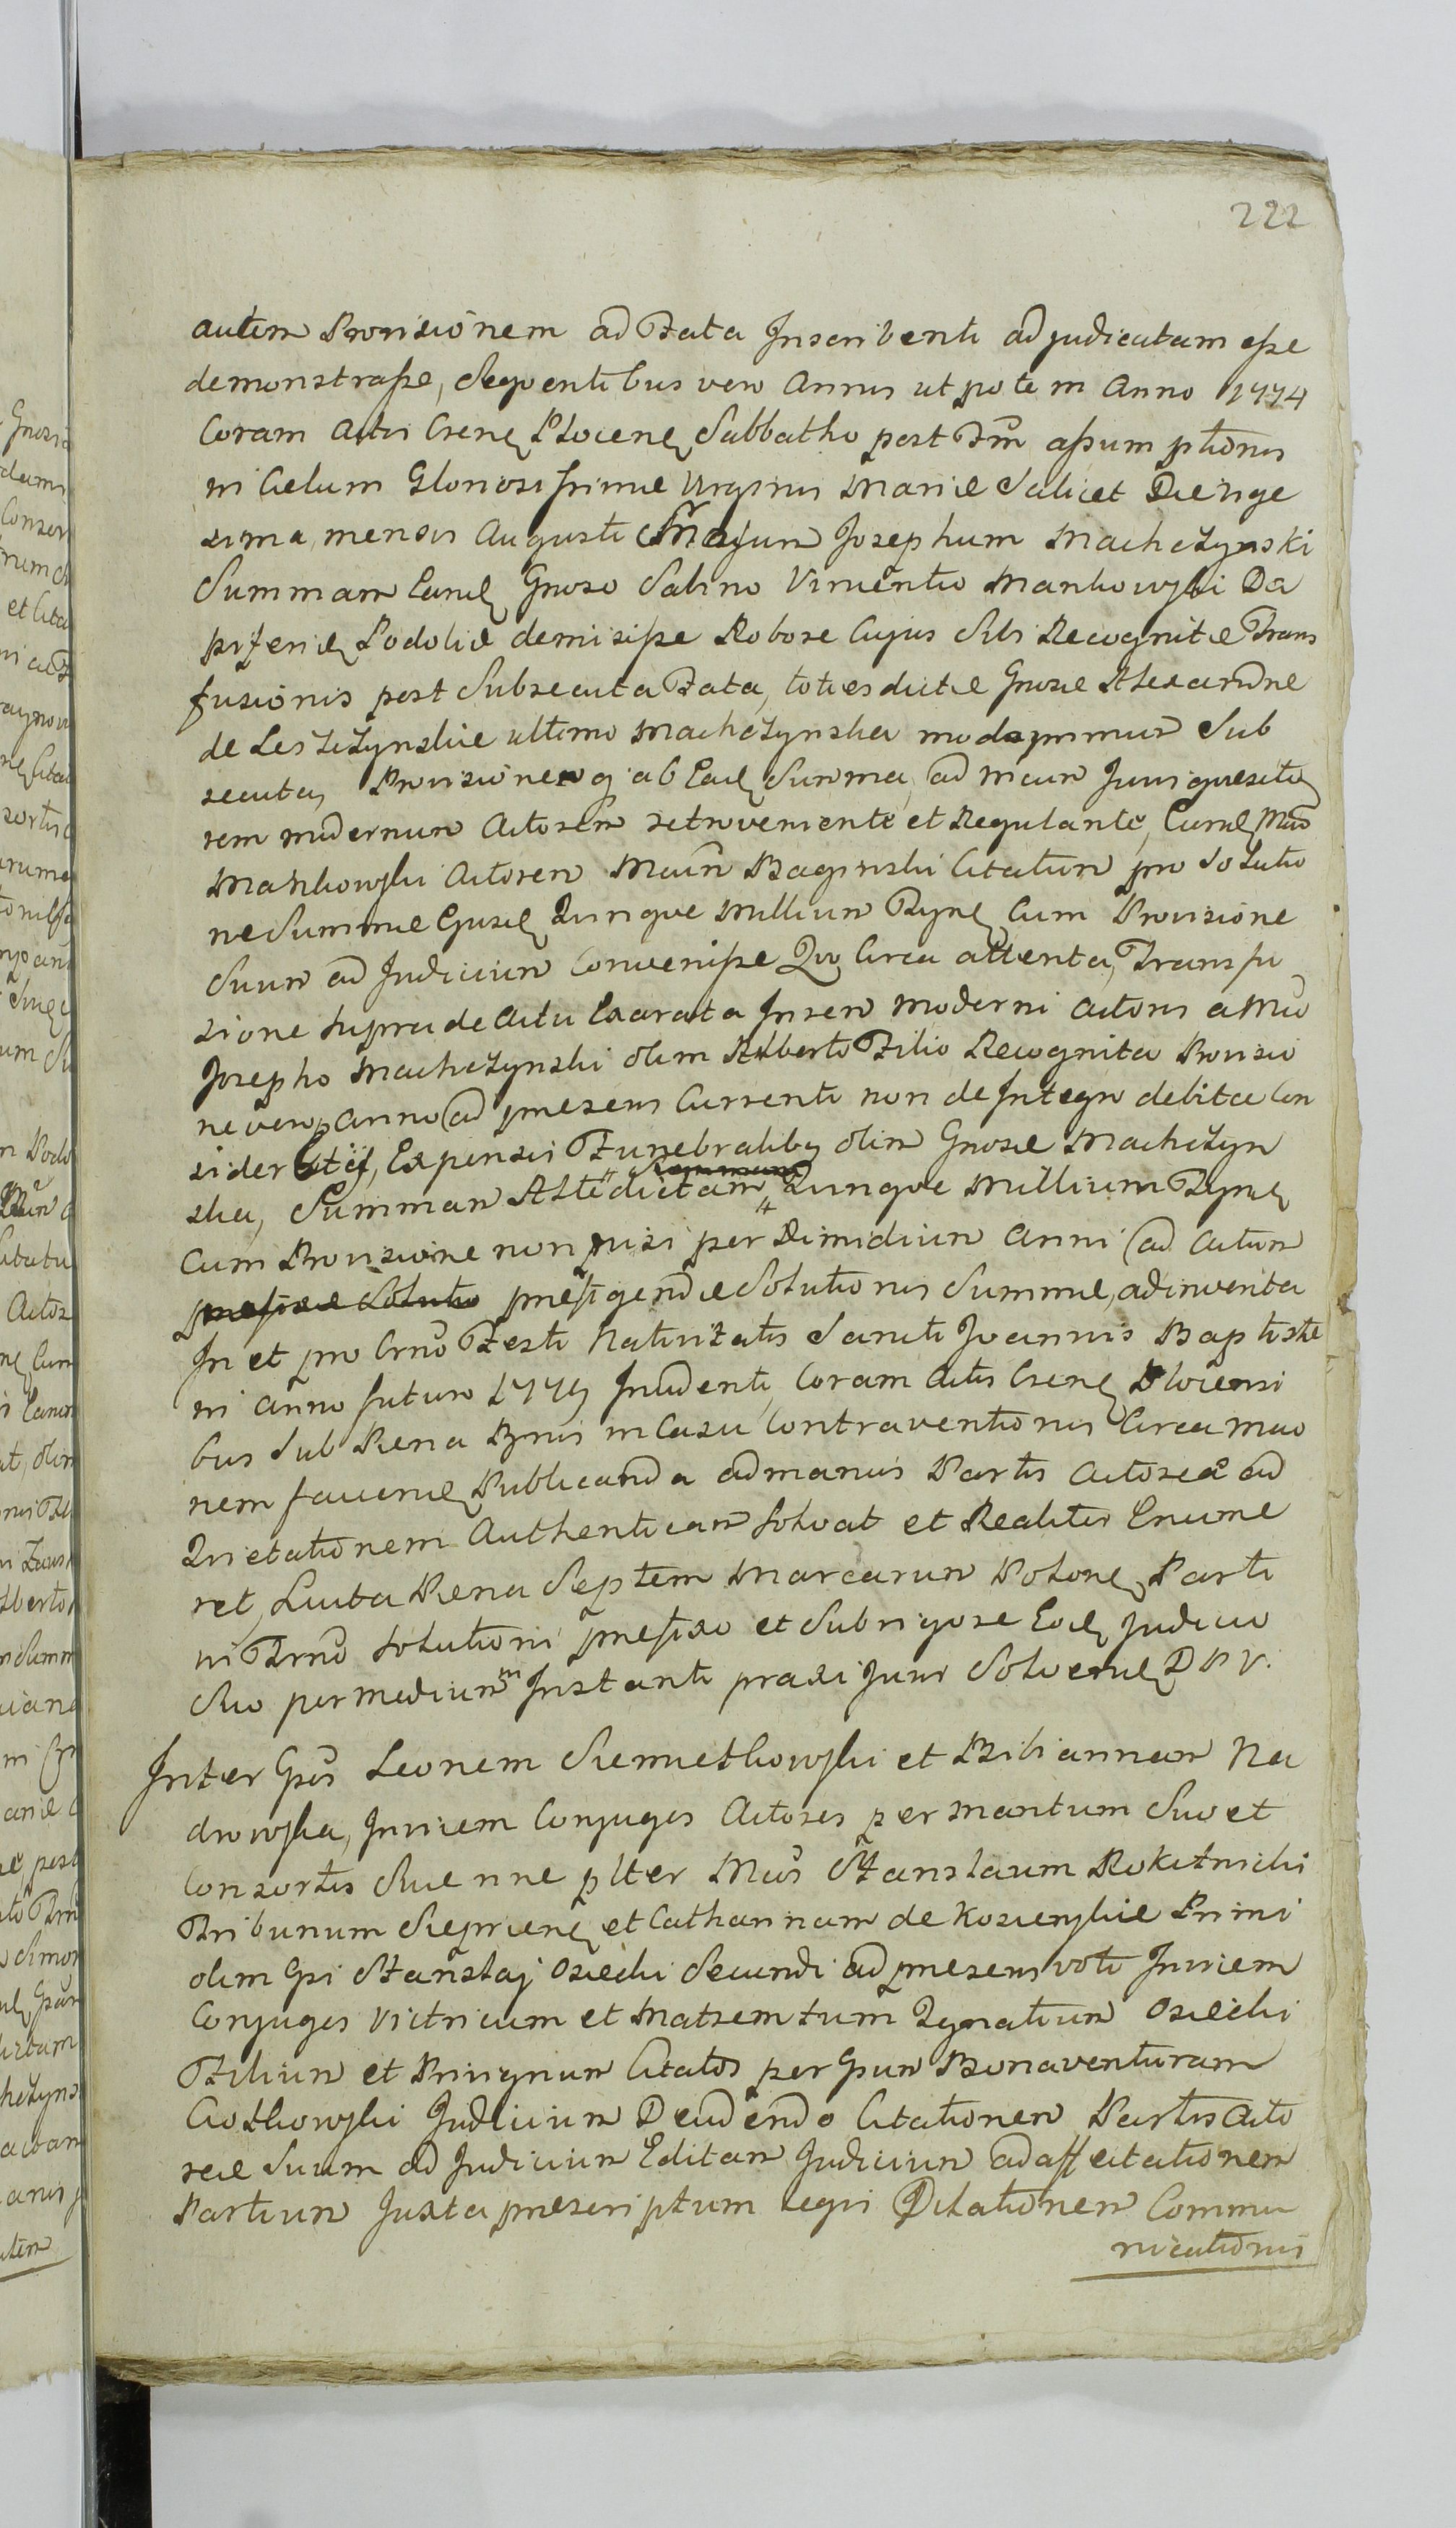 222
autem Provisionem ad Fata Inscribenti adjudicatam esse
demonstrasse, Sequentibus vero Annis utpote in Anno 1774
Coram Actis Csren Plocen Sabbatho post Ftm assumptionis
in Celum Gloriosissimæ Virginis Mariæ Scilicet Die vige
sima mensis Augusti Mfcum Josephum Machczynski
Summam Eand Gnoso Sabino Vincentio Mankowski Da
piferid Podoliæ demisisse Robore Cujus Sibi Recognitæ Trans
fusionis post Subsecuta Fata, toties dictæ Gnosæ Alexandræ
de Leszczynskie ultimo Machczynska Sub
secuta, Provisioneq ab Ead Summa, ad Mcum Juvi
rem modernum Actorem retroveniente et Regulante, Eund Mcum
Mankowski Actorem Mcum Baginski Citatum pro Solutio
ne Summæ Ejusd Quinque Millium Flpnl Cum Provisione
Suum ad Judicium Convenisse Quo Circa attenta, Transfu
sione supra de Actu Exarata In rem moderni Actoris a Mco
Josepho Machczynski olim Alberto Filio Recognita Provisio
ne vero p anno ad præsens Currenti non de Integro debita Con
sider Expensis Funebralibq olim Gnosæ Machczyn
ska, Summam Attedictam Summam Quinque Millium Flpnl
Cum Provisione non nisi per Dimidium Anni ad Actum
præfixæ Solutio præfigendæ Solutionis Summæ, adinventa
In et pro Crno Festi Nativitatis Sancti Joannis Baptistæ
in anno futuro 1775 Incidenti, Coram Actis Csren Plocensi
bus Sub Pæna Bnis in Casu Contraventionis Circa Muo
nem faciend Publicanda ad manus Partis Actoreæ ad
Quietationem Authenticam Solvat et Realiter Enume
ret, Luita Pæna Septem Marcarum Polonl Parti
in Trno Solutioni præfixo et Sub rigore Eod Judicio
Suo per medium Instanti praxi Juris Solvend D P V.
Inter Gsos Leonem Siemietkowski et Bibiannam Na
drowska, Invicem Conjuges Actores per Maritum Suo et
Consortis Suæ nne plter Mcos Stanislaum Rokitnicki
Tribunum Sieprcen et Catharinam de Kosienskie Primi
olim Gsi Stanislaj Osiecki Secundi ad præsens voti Invicem
Conjuges Vitricum et Matrem tum Ignatium Osiecki
Filium et Privignum Citatos per Gsum Bonaventuram
Ciotkowski Judicium Decidendo Citationem Partis Acto
reæ Suum ad Judicium Editam Judicium ad affectationem
Partium Juxta præscriptum legis Dilationem Commu
nicationis